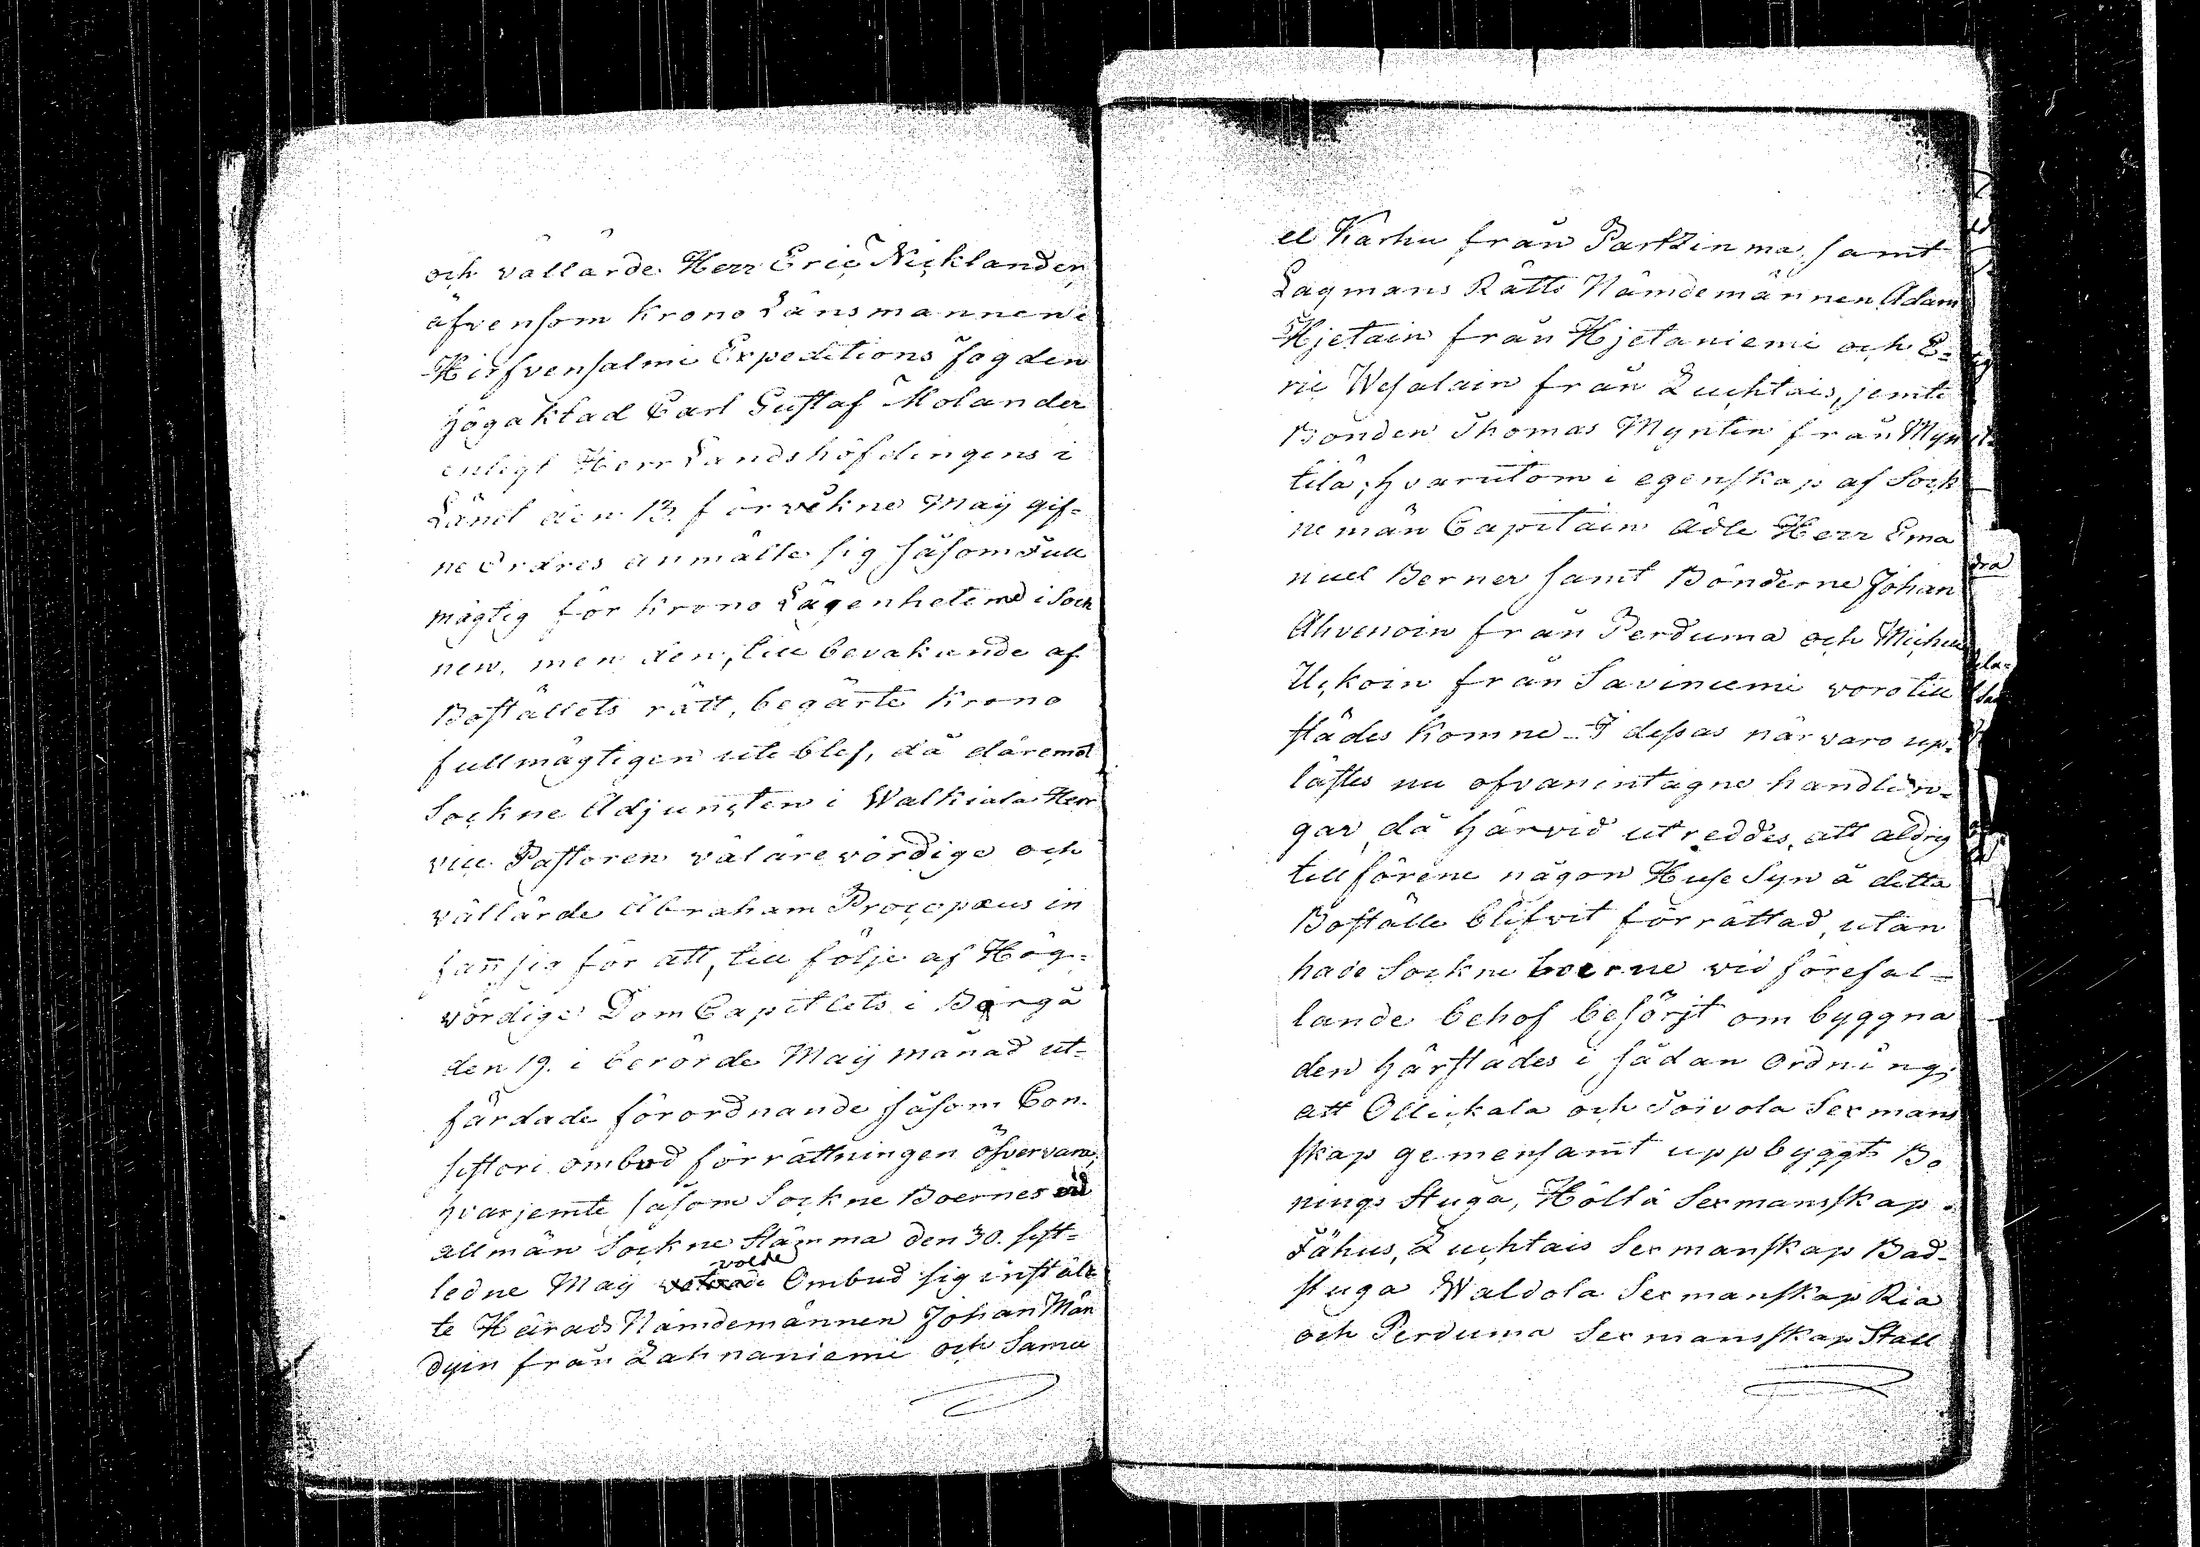 och vällärde Herr Eric Nicklander,
äfvensom Krono Länsmannen i
Hirfvensalmi Expeditions Fogden
högaktad Carl Gustaf Molander
enligt Herr Landshöfdingens i
Länet den 13. förvekne Maij gif-
ne Ordres anmälte sig såsom Full
mägtig för Krono Lägenheterne i Sock
nen, men den, till bevakande af
Boställets rätt, begärte Krono
fullmägtigen ute blef, då däremot
Sockne Adjuncten i Walkiala Herr
vice Pastoren välärevördige och
vällärde Abraham Procopæus in
fan̄ sig för att, till följe af Hög-
vördige Dom Capitlets i Borgå
den 19. i berörde Maij månad ut-
färdade förordnande såsom Con-
sistori ombud förrättningen öfvervara,
hvarjemte såsom Sockne Boernes vid
allmän Sockne Stämma den 30. sist-
volde
ledne Maij Ombud sig instäl-
te Härads Nämdemännen Johan Män
dyin från Lahnaniemi och Samu
el Karhu från Parkkinma, samt
Lagmans Rätts Nämdemännen Adam
Hjetain från Hjetaniemi och E-
ric Wesalain från Luchtais, jemte
Bonden Thomas Myntin från Myn
tilä, hvarutom i egenskap af Sock
ne män Capitain Ädle Herr Ema
nuel Berner samt Bönderne Johan
Ahvenoin från Perduma och Michel
Uckoin från Saviniemi voro till
städes komne. I dessas närvaro up-
lästes nu ofvanintagne handlin-
gar, då härvid utreddes, att aldrig
tillförene någon Huse Syn å detta
Boställe blifvit förrättad, utan
hade Sockne boerne vid förefal-
lande behof besörjt om byggna
den härstädes i sådan Ordning,
att Ollickala och Toivola Sexmans
skap gemensamt uppbyggt Bo
nings Stuga, Höltä Sexmansskap
Fähus, Luchtais Sexmanskap Bad-
stuga Waldola Sexmanskap Ria
och Perduma Sexmansskap Stall